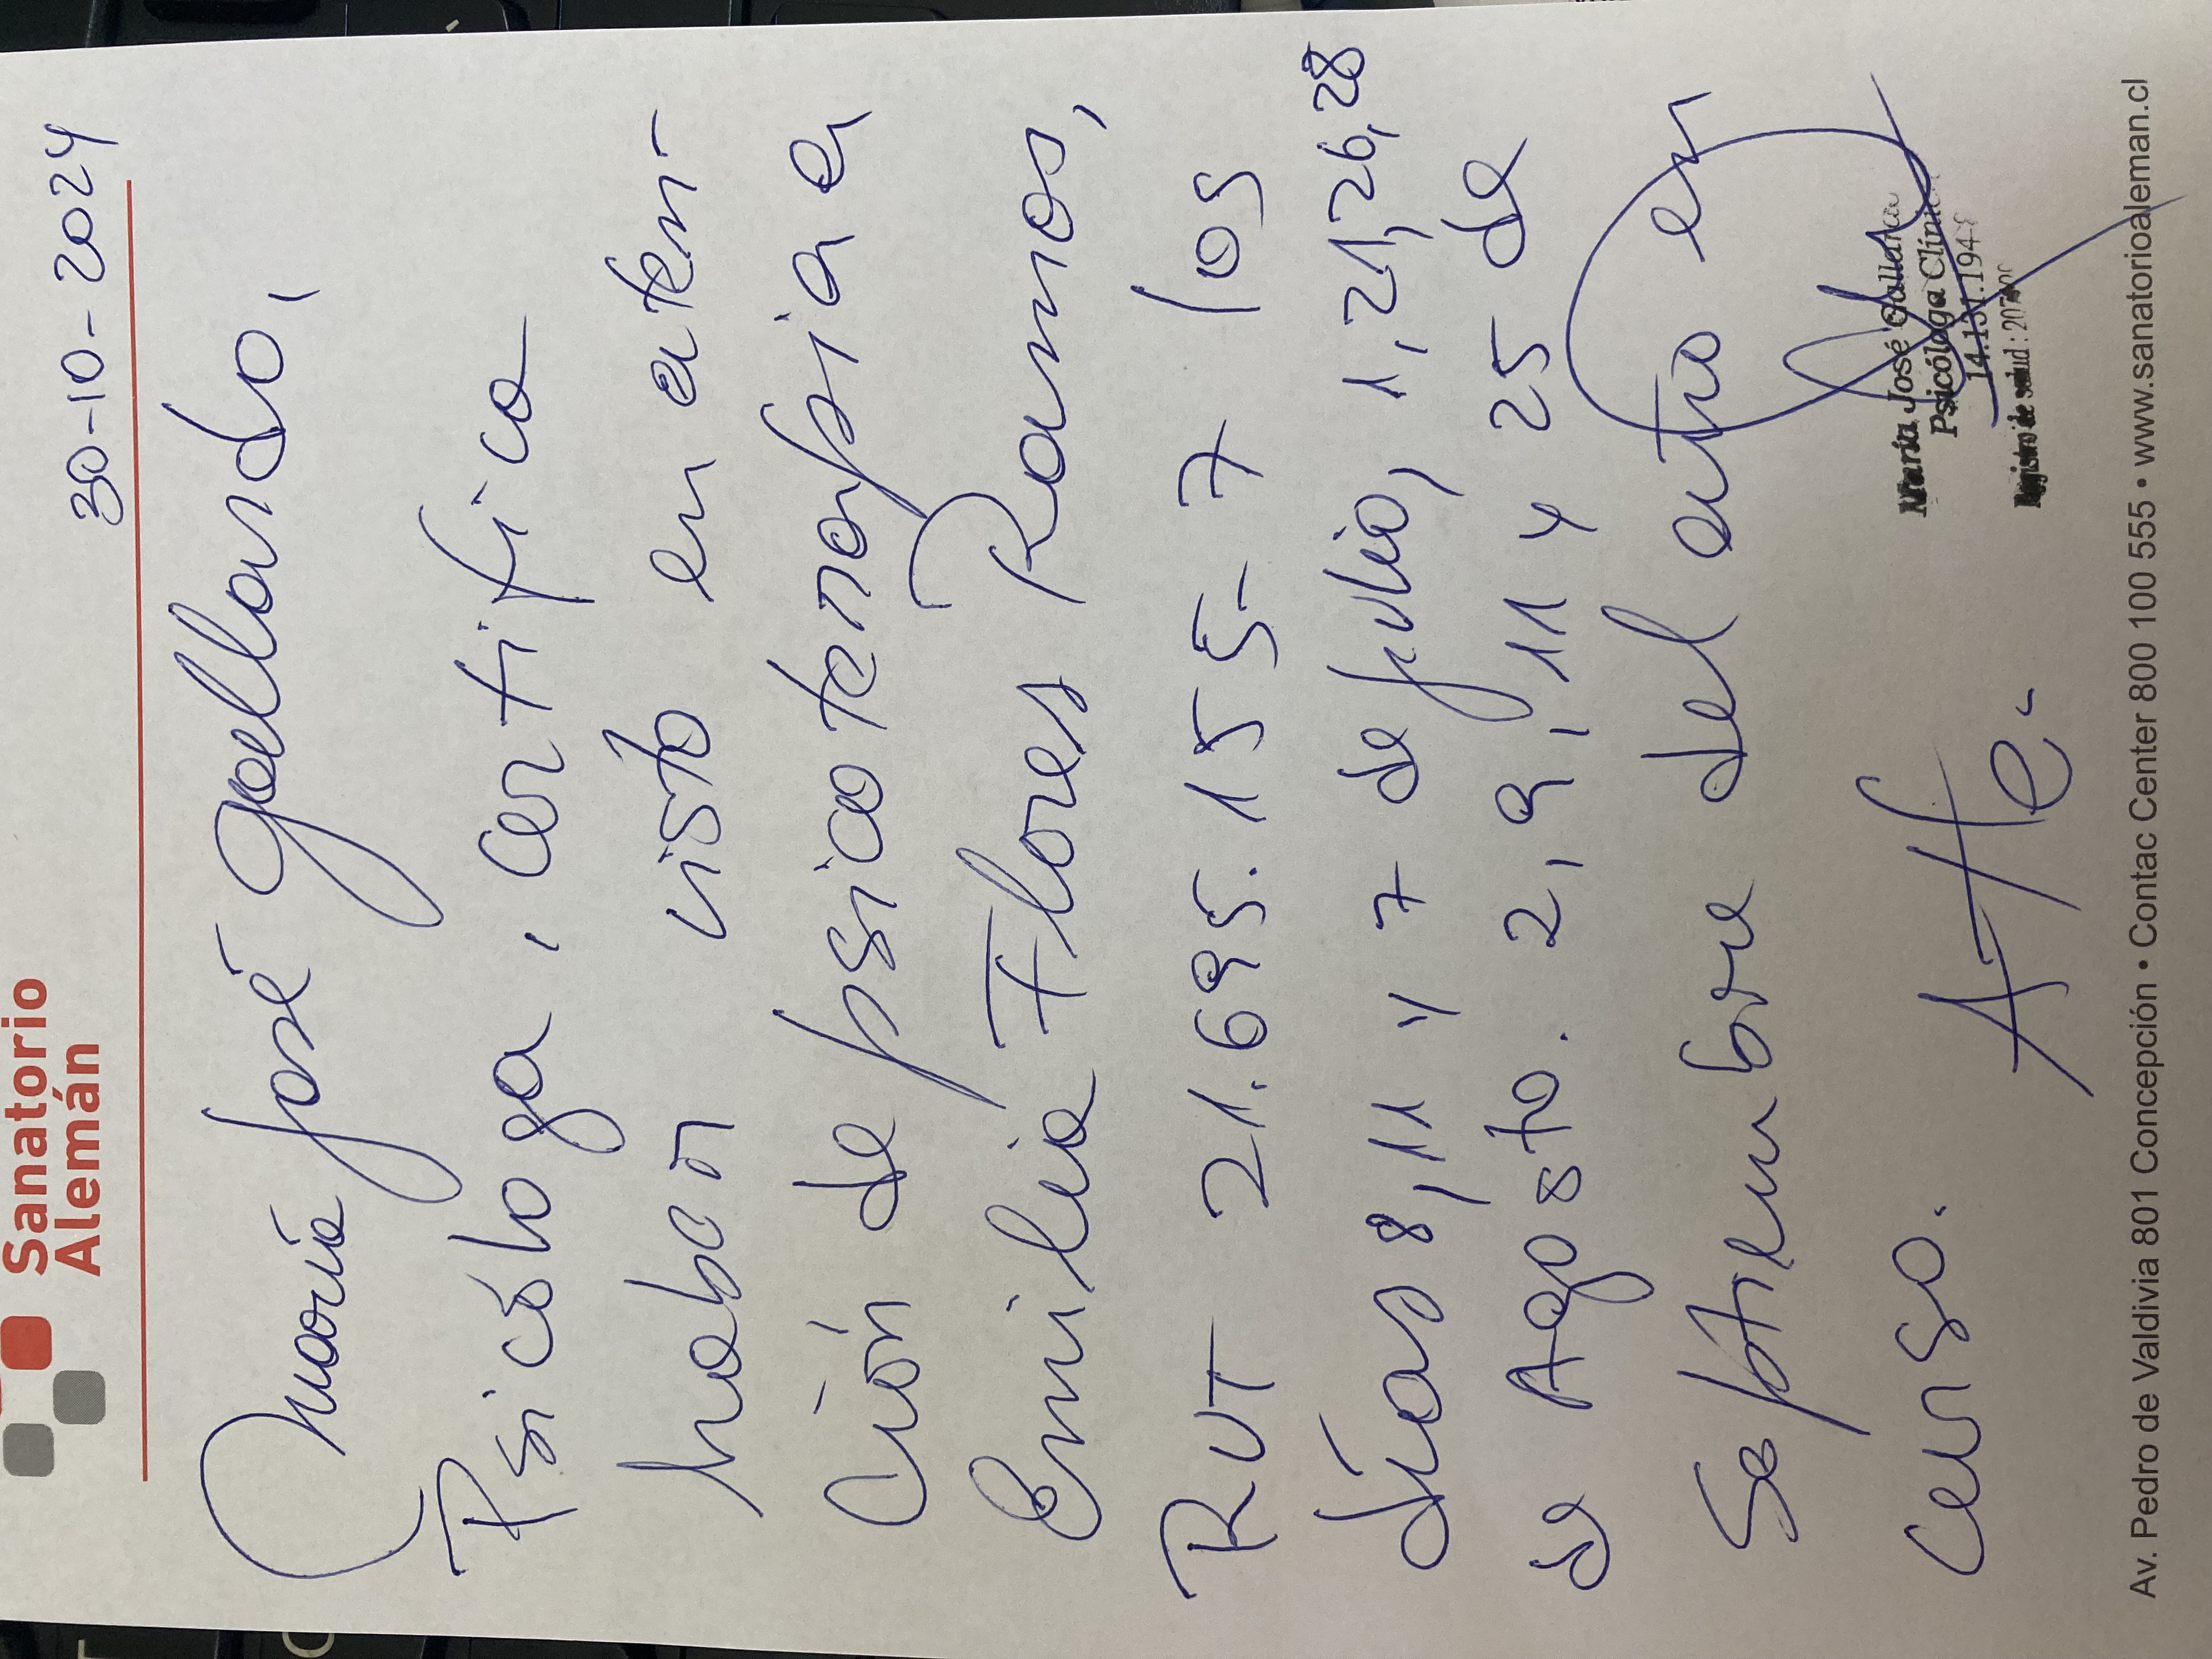 Sanatorio
Alemán
30-10-2024
María José Gallardo,
Psicóloga, certifico
haber visto en aten-
ción de psicoterapia a
Emilia Flores Ramos,
RUT 21.695.155-7 los
días 8, 11 y 7 de Julio, 1, 21, 26, 28
de Agosto. 2, 9, 11 y 25 de
Septiembre del año en
curso.
Atte.
María José
Psicóloga Clínica
14.131.194
Registro de salud: 207
Av. Pedro de Valdivia 801 Concepción • Contac Center 800 100 555 • www.sanatorioaleman.cl